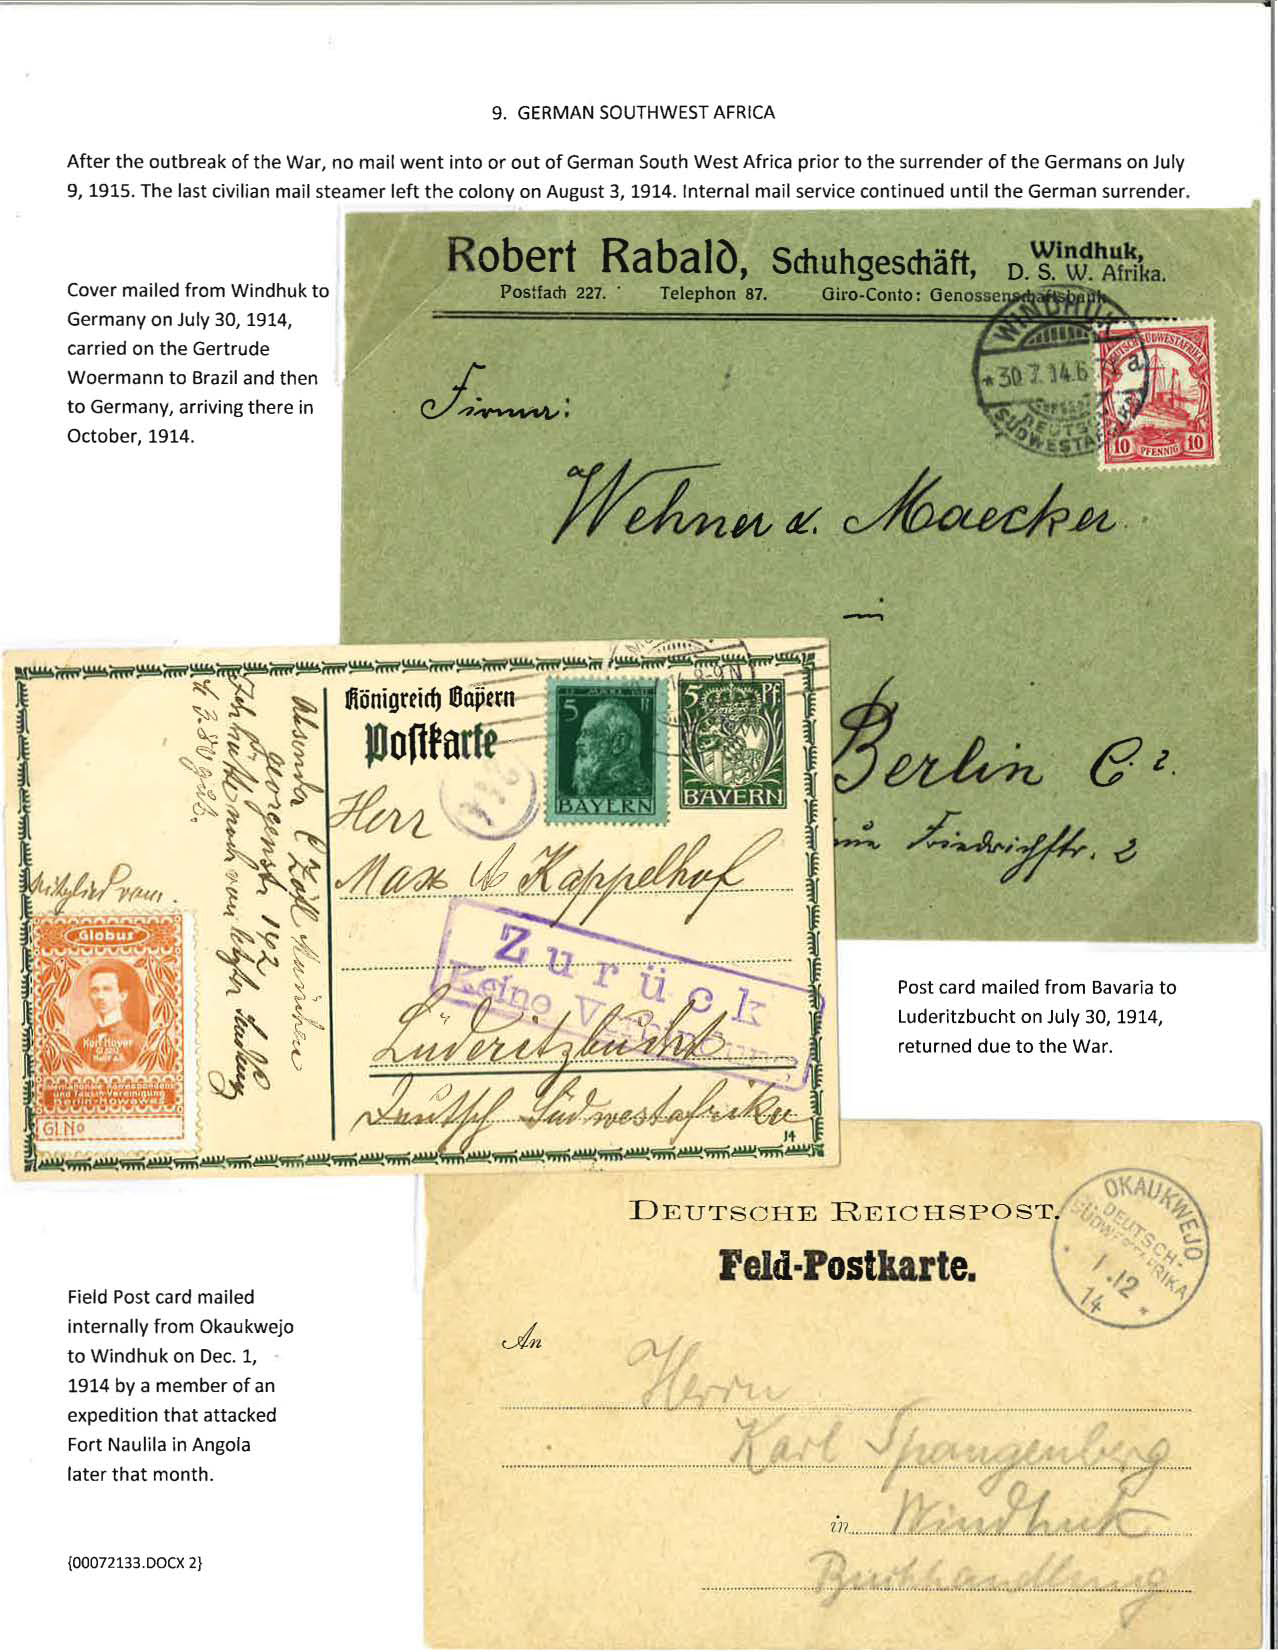 9. GERMAN SOUTHWEST AFRICA
After the outbreak of the War, no mail went into or out of German South West Africa prior to the surrender of the Germans on July
9, 1915. The last civilian mail steamer left the colony on August 3, 1914. Internal mail service continued until the German surrender.
Cover mailed from Windhuk to
Germany on July 30, 1914,
carried on the Gertrude
Woermann to Brazil and then
to Germany, arriving there in
October, 1914.
Robert Rabald, Schuhgeschäft, Windhuk,
D. S. W. Afrika.
Postfach 227. Telephon 87. Giro-Conto: Genossenschaftsbank
WINDHUK
*30.7.14.6 a
DEUTSCH
SÜDWESTAFRIKA
DEUTSCH-SÜDWESTAFRIKA
10 PFENNIG 10
Firma:
Wehner & Maecker
in
Berlin C. 2.
Friedrichstr. 2
Königreich Bayern
Postkarte
5
BAYERN
5 Pf
BAYERN
8-9 N
Herr
Max Kappelhof
Zurück
Keine Verbindung
Lüderitzbucht
Deutsch Südwestafrika
14
Absender
München
Georgenstr 142
Mitglied vom
Globus
Karl Hoyer
Internationale Korrespondenz
und Tausch-Vereinigung
Berlin-Nowawes
Gl. No
Post card mailed from Bavaria to
Luderitzbucht on July 30, 1914,
returned due to the War.
DEUTSCHE REICHSPOST.
Feld-Postkarte.
OKAUKWEJO
DEUTSCH-
SÜDWESTAFRIKA
1.12
14
An
Herrn
Karl Spangenberg
in Windhuk
Buchhandlung
Field Post card mailed
internally from Okaukwejo
to Windhuk on Dec. 1,
1914 by a member of an
expedition that attacked
Fort Naulila in Angola
later that month.
{00072133.DOCX 2}